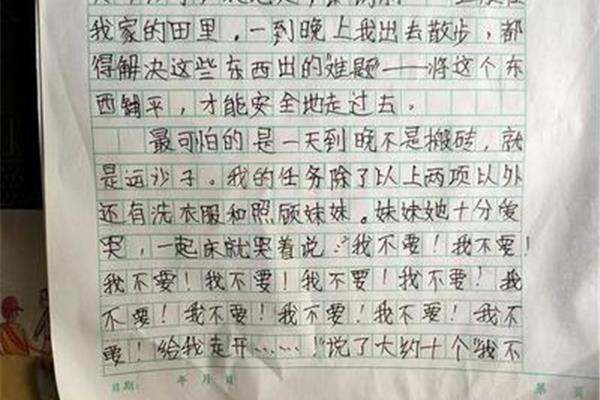 我家的田里，一到晚上我出去散步，都
得解决这些东西出的“难题”——将这个东
西铺平，才能安全地走过去。
最可怕的是一天到晚不是搬砖，就
是运沙子。我的任务除了以上两项以外
还有洗衣服和照顾妹妹。妹妹她十分爱
哭，一起床就哭着说：“我不要！我不要！
我不要！我不要！我不要！我不要！我
不要！我不要！我不要！我不要！我不
要！给我走开……！”说了大约十个“我不
日期： 年 月 日 第 页